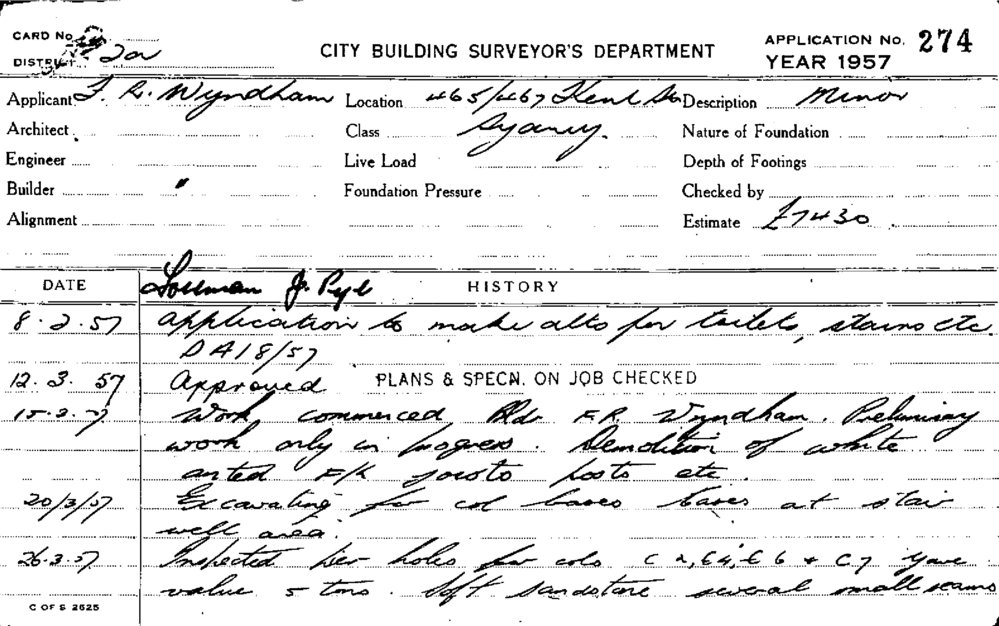 CARD No.
DISTRICT 2a
CITY BUILDING SURVEYOR'S DEPARTMENT
APPLICATION No. 274
YEAR 1957
Applicant F. R. Wyndham Location 465/467 Kent St Description Minor
Architect Class Sydney. Nature of Foundation
Engineer Live Load Depth of Footings
Builder " Foundation Pressure Checked by
Alignment Estimate £7430
DATE J. Pyle HISTORY
8.2.57 Application to make alts for toilets, stairs etc.
DA 18/57
12.3.57 Approved PLANS & SPECN. ON JOB CHECKED
Work commenced Bldr F.R. Wyndham. Preliminary
work only in progress. Demolition of white
anted F/K joists posts etc
20/3/57 Excavating for col bases at stair
well area.
26.3.57 Inspected pier holes for cols C 7 gave
value 5 tons. Soft sandstone several small seams
C OF S 2625